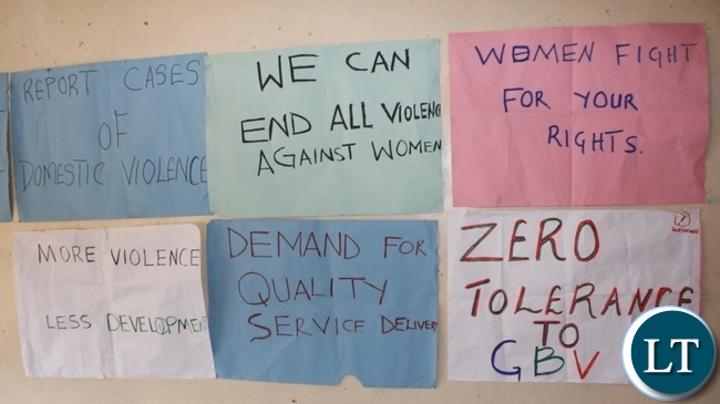 REPORT CASES
OF
DOMESTIC VIOLENCE
WE CAN
END ALL VIOLENC
AGAINST WOMEN
WOMEN FIGHT
FOR YOUR
RIGHTS.
MORE VIOLENCE
LESS DEVELOPMEN
DEMAND FOR
QUALITY
SERVICE DELIVER
ZERO
TOLERANCE
TO
GBV
LT